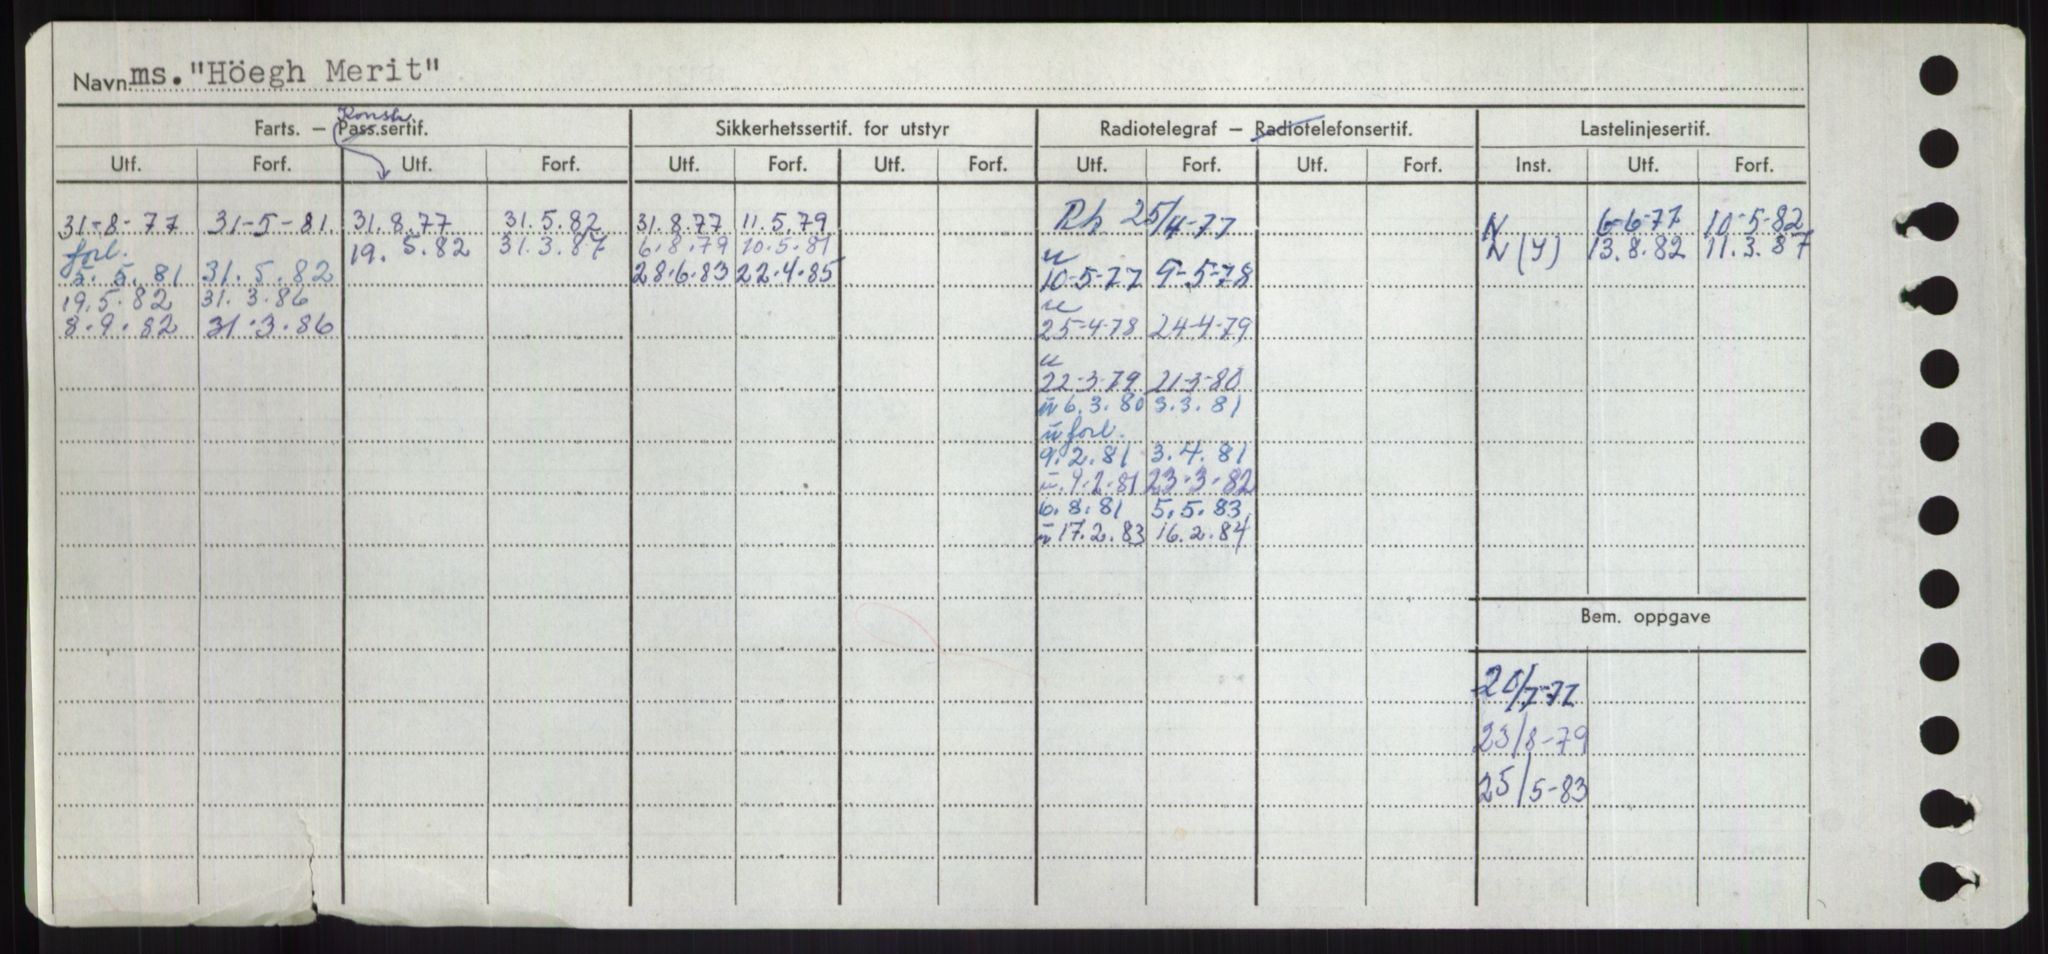 Navn: ms. "Höegh Merit"
Farts. – Pass.sertif. Konstr. Sikkerhetssertif. for utstyr Radiotelegraf – Radiotelefonsertif. Lastelinjesertif.
Utf. Forf. Utf. Forf. Utf. Forf. Utf. Forf. Utf. Forf. Utf. Forf. Inst. Utf. Forf.
31-8-77 31-5-81. 31.8.77 31.5.82 31.8.77 11.5.79 Rh 25/4-77 N 6-6-77 10-5-82
forl. 19.5.82 31.3.87 6.8.79 10.5.81 u N (Y) 13.8.82 11.3.87
5.5.81 31.5.82 28.6.83 22.4.85 10-5-77 9-5-78
19.5.82 31.3.86 u
8.9.82 31.3.86 25-4-78 24-4-79
u
22-3-79 21-3-80
u 6.3.80 3.3.81
u forl.
9.2.81 3.4.81
u. 9.2.81 23.3.82
6.8.81 5.5.83
u 17.2.83 16.2.84
Bem. oppgave
20/7-77
23/8-79
25/5-83